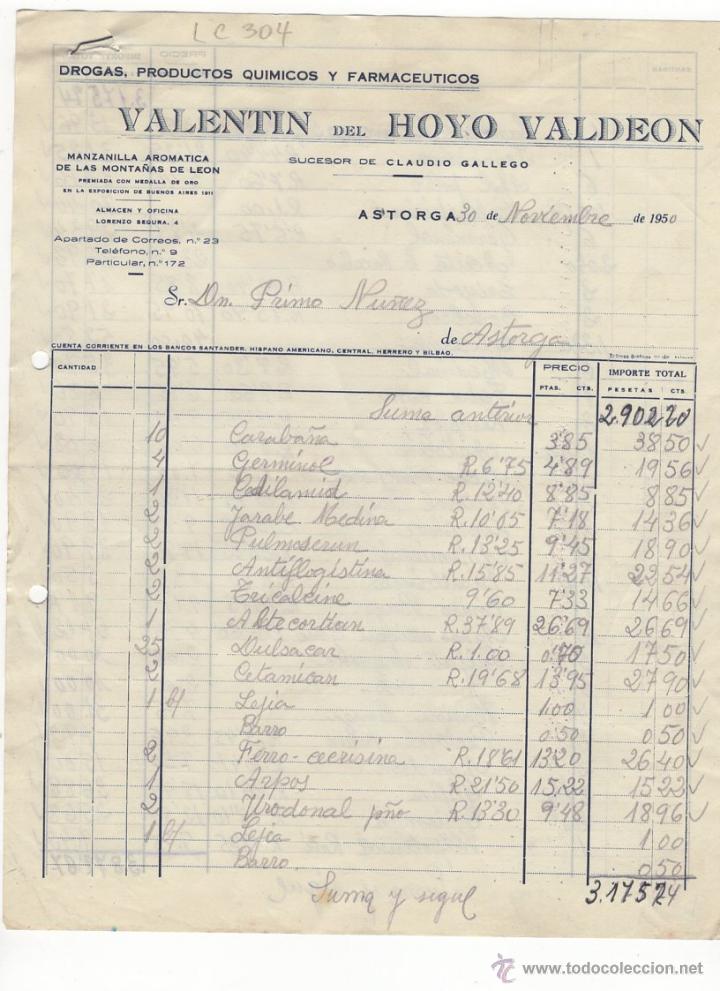 LC 304
DROGAS, PRODUCTOS QUIMICOS Y FARMACEUTICOS
VALENTIN DEL HOYO VALDEON
SUCESOR DE CLAUDIO GALLEGO
MANZANILLA AROMATICA
DE LAS MONTAÑAS DE LEON
PREMIADA CON MEDALLA DE ORO
EN LA EXPOSICION DE BUENOS AIRES 1911
ALMACEN Y OFICINA
LORENZO SEGURA, 4
Apartado de Correos, n.º 23
Teléfono, n.º 9
Particular, n.º 172
ASTORGA 30 de Noviembre de 1950
Sr. Dn. Primo Nuñez
de Astorga
CUENTA CORRIENTE EN LOS BANCOS SANTANDER, HISPANO AMERICANO, CENTRAL, HERRERO Y BILBAO.
CANTIDAD PRECIO IMPORTE TOTAL
PTAS. CTS. PESETAS CTS.
Suma anterior 2.902 20
10 Carabaña 3'85 38 50
4 Germinol R. 6'75 4'89 19 56
1 R. 12'40 8'85 8 85
2 Jarabe Medina R. 10'05 7'18 14 36
2 Pulmoserun R. 13'25 9'45 18 90
2 Antiflogistina R. 15'85 11'27 22 54
2 Tricalcine 9'60 7'33 14 66
1 R. 37'89 26'69 26 69
25 Dulsacar R. 1.00 0'70 17 50
2 Cetamican R. 19'68 13'95 27 90
1 b/ Lejia 1.00 1 00
Barro 0.50 0 50
2 R. 18'61 13'20 26 40
1 Arpos R. 21'50 15,22 15 22
2 Urodonal pño R. 13'30 9'48 18 96
1 b/ Lejia 1 00
Barro 0 50
Suma y sigue 3.175 74
www.todocoleccion.net